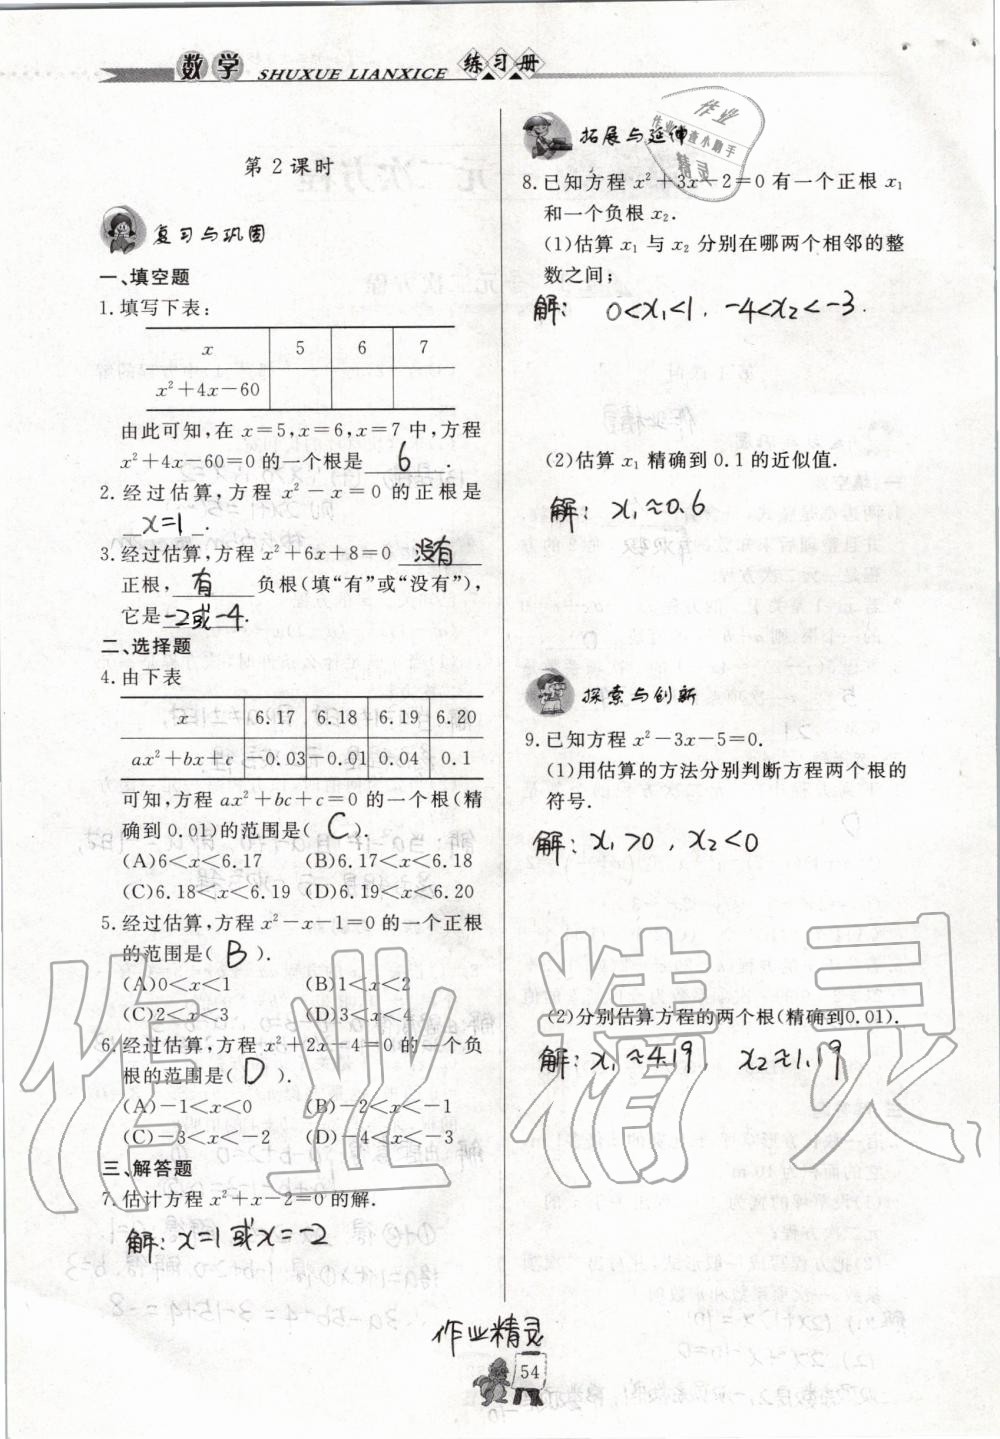 数学 SHUXUE LIANXICE 练习册
第2课时
复习与巩固
一、填空题
1.填写下表:
x 5 6 7
x²+4x-60
由此可知,在x=5,x=6,x=7中,方程
x²+4x-60=0的一个根是 6 .
2.经过估算,方程x²-x=0的正根是
x=1 .
3.经过估算,方程x²+6x+8=0 没有
正根, 有 负根(填“有”或“没有”),
它是-2或-4.
二、选择题
4.由下表
x 6.17 6.18 6.19 6.20
ax²+bx+c -0.03 -0.01 0.04 0.1
可知,方程ax²+bc+c=0的一个根(精
确到0.01)的范围是( C ).
(A)6<x<6.17 (B)6.17<x<6.18
(C)6.18<x<6.19 (D)6.19<x<6.20
5.经过估算,方程x²-x-1=0的一个正根
的范围是( B ).
(A)0<x<1 (B)1<x<2
(C)2<x<3 (D)3<x<4
6.经过估算,方程x²+2x-4=0的一个负
根的范围是( D ).
(A)-1<x<0 (B)-2<x<-1
(C)-3<x<-2 (D)-4<x<-3
三、解答题
7.估计方程x²+x-2=0的解.
解: x=1或x=-2
拓展与延伸
作业
精灵
8.已知方程x²+3x-2=0有一个正根x₁
和一个负根x₂.
(1)估算x₁与x₂分别在哪两个相邻的整
数之间;
解: 0<x₁<1, -4<x₂<-3.
(2)估算x₁精确到0.1的近似值.
解: x₁≈0.6
探索与创新
9.已知方程x²-3x-5=0.
(1)用估算的方法分别判断方程两个根的
符号.
解: x₁>0, x₂<0
(2)分别估算方程的两个根(精确到0.01).
解: x₁≈4.19, x₂≈1.19
作业精灵
作业精灵
54